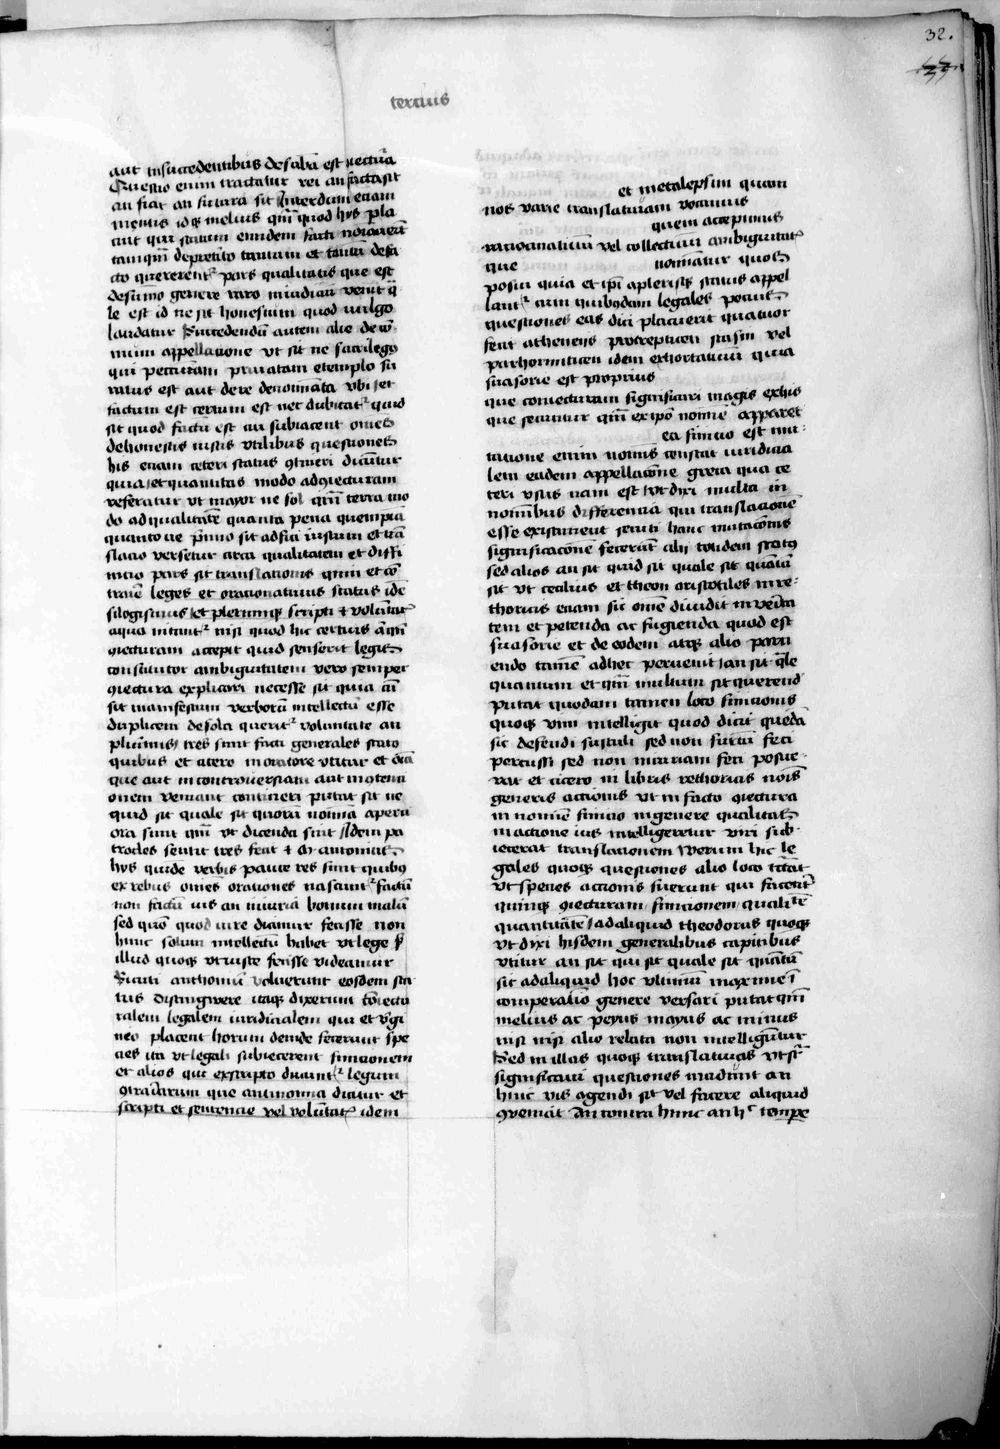 32.
tercius
aut insuccedentibus desabā est ɔiectura
Questio enim tractatur rei an facta sit
an fiat an futura sit Interdum etiam
mentis idq; melius qm̄ quod hys pla
cuit qui statum eiusdem facti noīaverūt
tamqm̄ depretito tantum et tantū defa
cto quererent² pars qualitatis que est
desūmo genere raro
le est id ne sit honestum quod vulgo
laudatur Succedendū autem alie de cō
muni appellatione vt sit ne sacrilegꝯ
qui peccuniam privatam etemplo fu
ratus est aut de re denominata vbi et
factum est certum est nec dubitat² quid
sit quod factū est cui subiacent omēs
dehonestis iustis vtilibus questiones
his etiam ceteri status ꝯtineri dicūtur
quia et quantitas modo adꝯiecturam
referatur vt mayor ne sol qm̄ terra mo
do ad qualitatē quanta pena quempiā
quanto ue p̄mio sit adfici iustum et trā
slatio versetur circa qualitatem et diffi
nicio pars sit translationis quin et cō
trarie leges et orationativus status idē
silogismus et plerumq; scripti ⁊ volūtat²
equo nitant² nisi quod hic tertius aliqm̄
ꝯiecturam accepit quid senserit legis
constitutor ambiguitatem vero semper
ꝯiectura explicari necesse sit quia cū
sit manifestum verborū intellectū esse
duplicem desola querit² voluntate au
plurimis tres sunt facti generales stato
quibus et cicero in oratore vtitur et oīa
que aut in controversiam aut incotenti
onem veniant contineri putat sit ne
quid sit quale sit quorū nomina aperti
ora sunt qm̄ vt dicenda sint Idem pa
trocles sentit tres fecit ⁊ M antonius
hys quidē verbis pauce res sunt quibꝯ
ex rebus omēs orationes nascunt² factū
non factū ius an iniuria bonum malū
sed quō quod iure dicimur fecisse non
hunc solum intellectū habet vt lege s̄
illud quoq; vt iuste fecisse videamur
Secuti anthonium voluerunt eosdem sta
tus distingwere itaq; dixerunt cōiectu
ralem legalem iuridicialem qui et v̄gi
neo placent horum deinde fecerunt spe
cies ita vt legali subiecerent finicionem
et alios qui exscripto ducunt² legum
ꝯtrariarum que antinomia dicitur et
scripti et sentencie vel volūtat² idem
et metalepsim quam
nos varie translatuam vocamus
quem accepimus
rationatiuū vel collectiuū ambiguitat²
que nominatur quos
posui quia et ip̄i aplerisq; status appel
lant² cum quibusdam legales pocius
questiones eas dici placuerit quatuor
fecit atheneus protrepticen stasin vel
parhormiticen idem exhortatiuū quia
suasorie est proprius
que coniecturam significari magis exhis
que secuntur qm̄ ex ip̄o nomīe apparet
ea finicio est mu⸗
tatione enim nomīs constat iuridicia
lem eadem appellacōne greca qua ce
teri vsus nam est vt dixi multa in
nominibus differentia qui translacionē
esse existiment secuti hanc mutacōnis
significacionē fecerūt alii totidem status
sed alios an sit quid sit quale sit quātū
sit vt cecilius et theon aristotiles in re⸗
thoricis etiam sic omē diuidit in verita
tem et petenda ac fugienda quod est
suasorie et de eodem atq; alio parti
endo tamē adhec peruenit an sit q̄le
quantum et qm̄ multum sit querend²
putat quodam tamen loco finicionis
quoq; vim intelligit quod dicit quedā
sic defendi sustuli sed non furtū feci
percussi sed non iniuriam feci posue⸗
rat et cicero in libris rethoricis noīs
generis actionis vt in facto ꝯiectura
in nomīe finicio in genere qualitas
in actione ius intelligeretur iuri sub⸗
iecerat translationem Verum hic le
gales quoq; questiones alio loco tractat
vt species actionis fuerunt qui facerent
quinq; ꝯiecturam finicionem qualitē
quantitatē adaliquid theodorus quoq;
vt dixi hisdem generalibus capitibus
vtitur an sit qui sit quale sit quātū
sit adaliquid hoc vltimū maxime ī
comperatiō genere versari putat qm̄
melius ac peyus mayus ac minus
nisi nisi alio relata non intelligūtur
Sed in illas quoq; translatiuas vt s̄²
significaui questiones incidunt an
huic vis agendi sit vel facere aliquid
ꝯveniat An contra hunc an hᶜ tempe